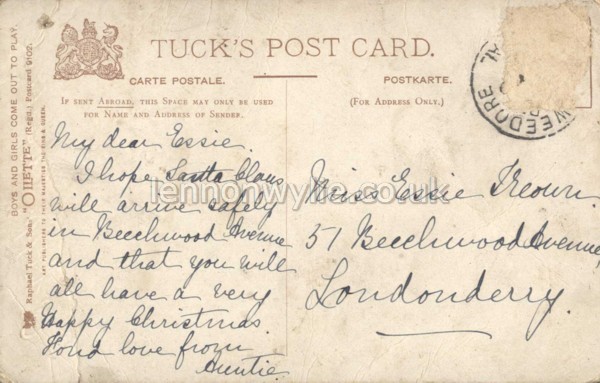 TUCK'S POST CARD.
CARTE POSTALE.
POSTKARTE.
IF SENT ABROAD, THIS SPACE MAY ONLY BE USED
FOR NAME AND ADDRESS OF SENDER.
(FOR ADDRESS ONLY.)
BOYS AND GIRLS COME OUT TO PLAY.
"OILETTE" (Regd.) Postcard 9102.
Raphael Tuck & Sons'
WEEDORE
AL
My dear Essie.
I hope Santa Claus
will arrive safely
in Beechwood Avenue
and that you will
all have a very
Happy Christmas.
Fond love from
Auntie.
Miss Essie
51 Beechwood Avenue,
Londonderry.
lennonwylie.co.uk